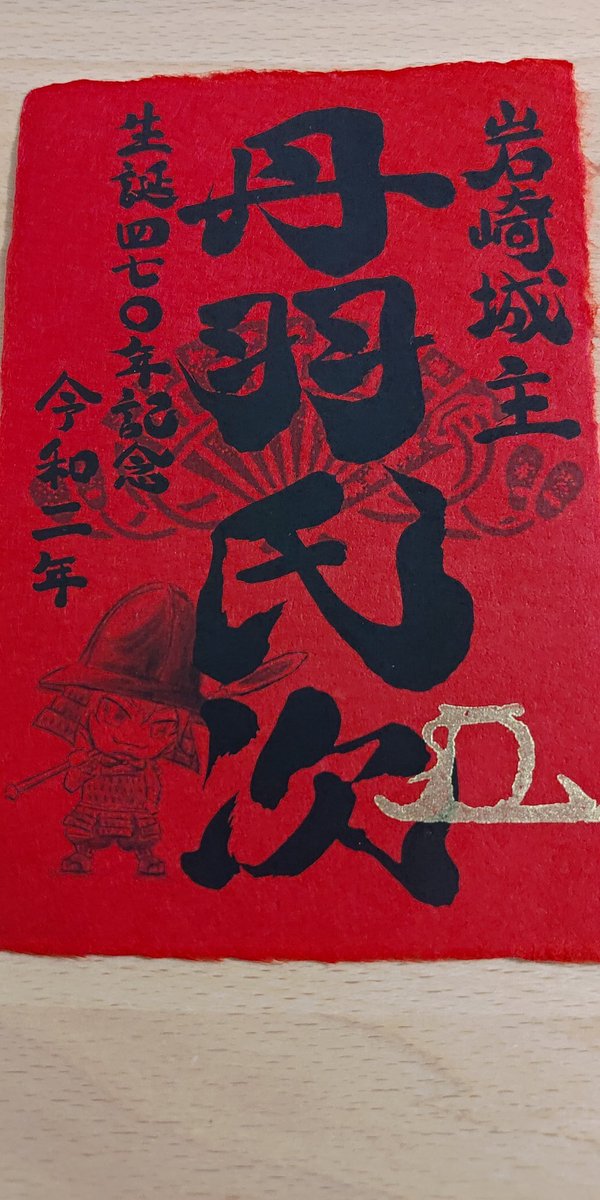 岩崎城主
丹羽氏次
生誕四七〇年記念
令和二年